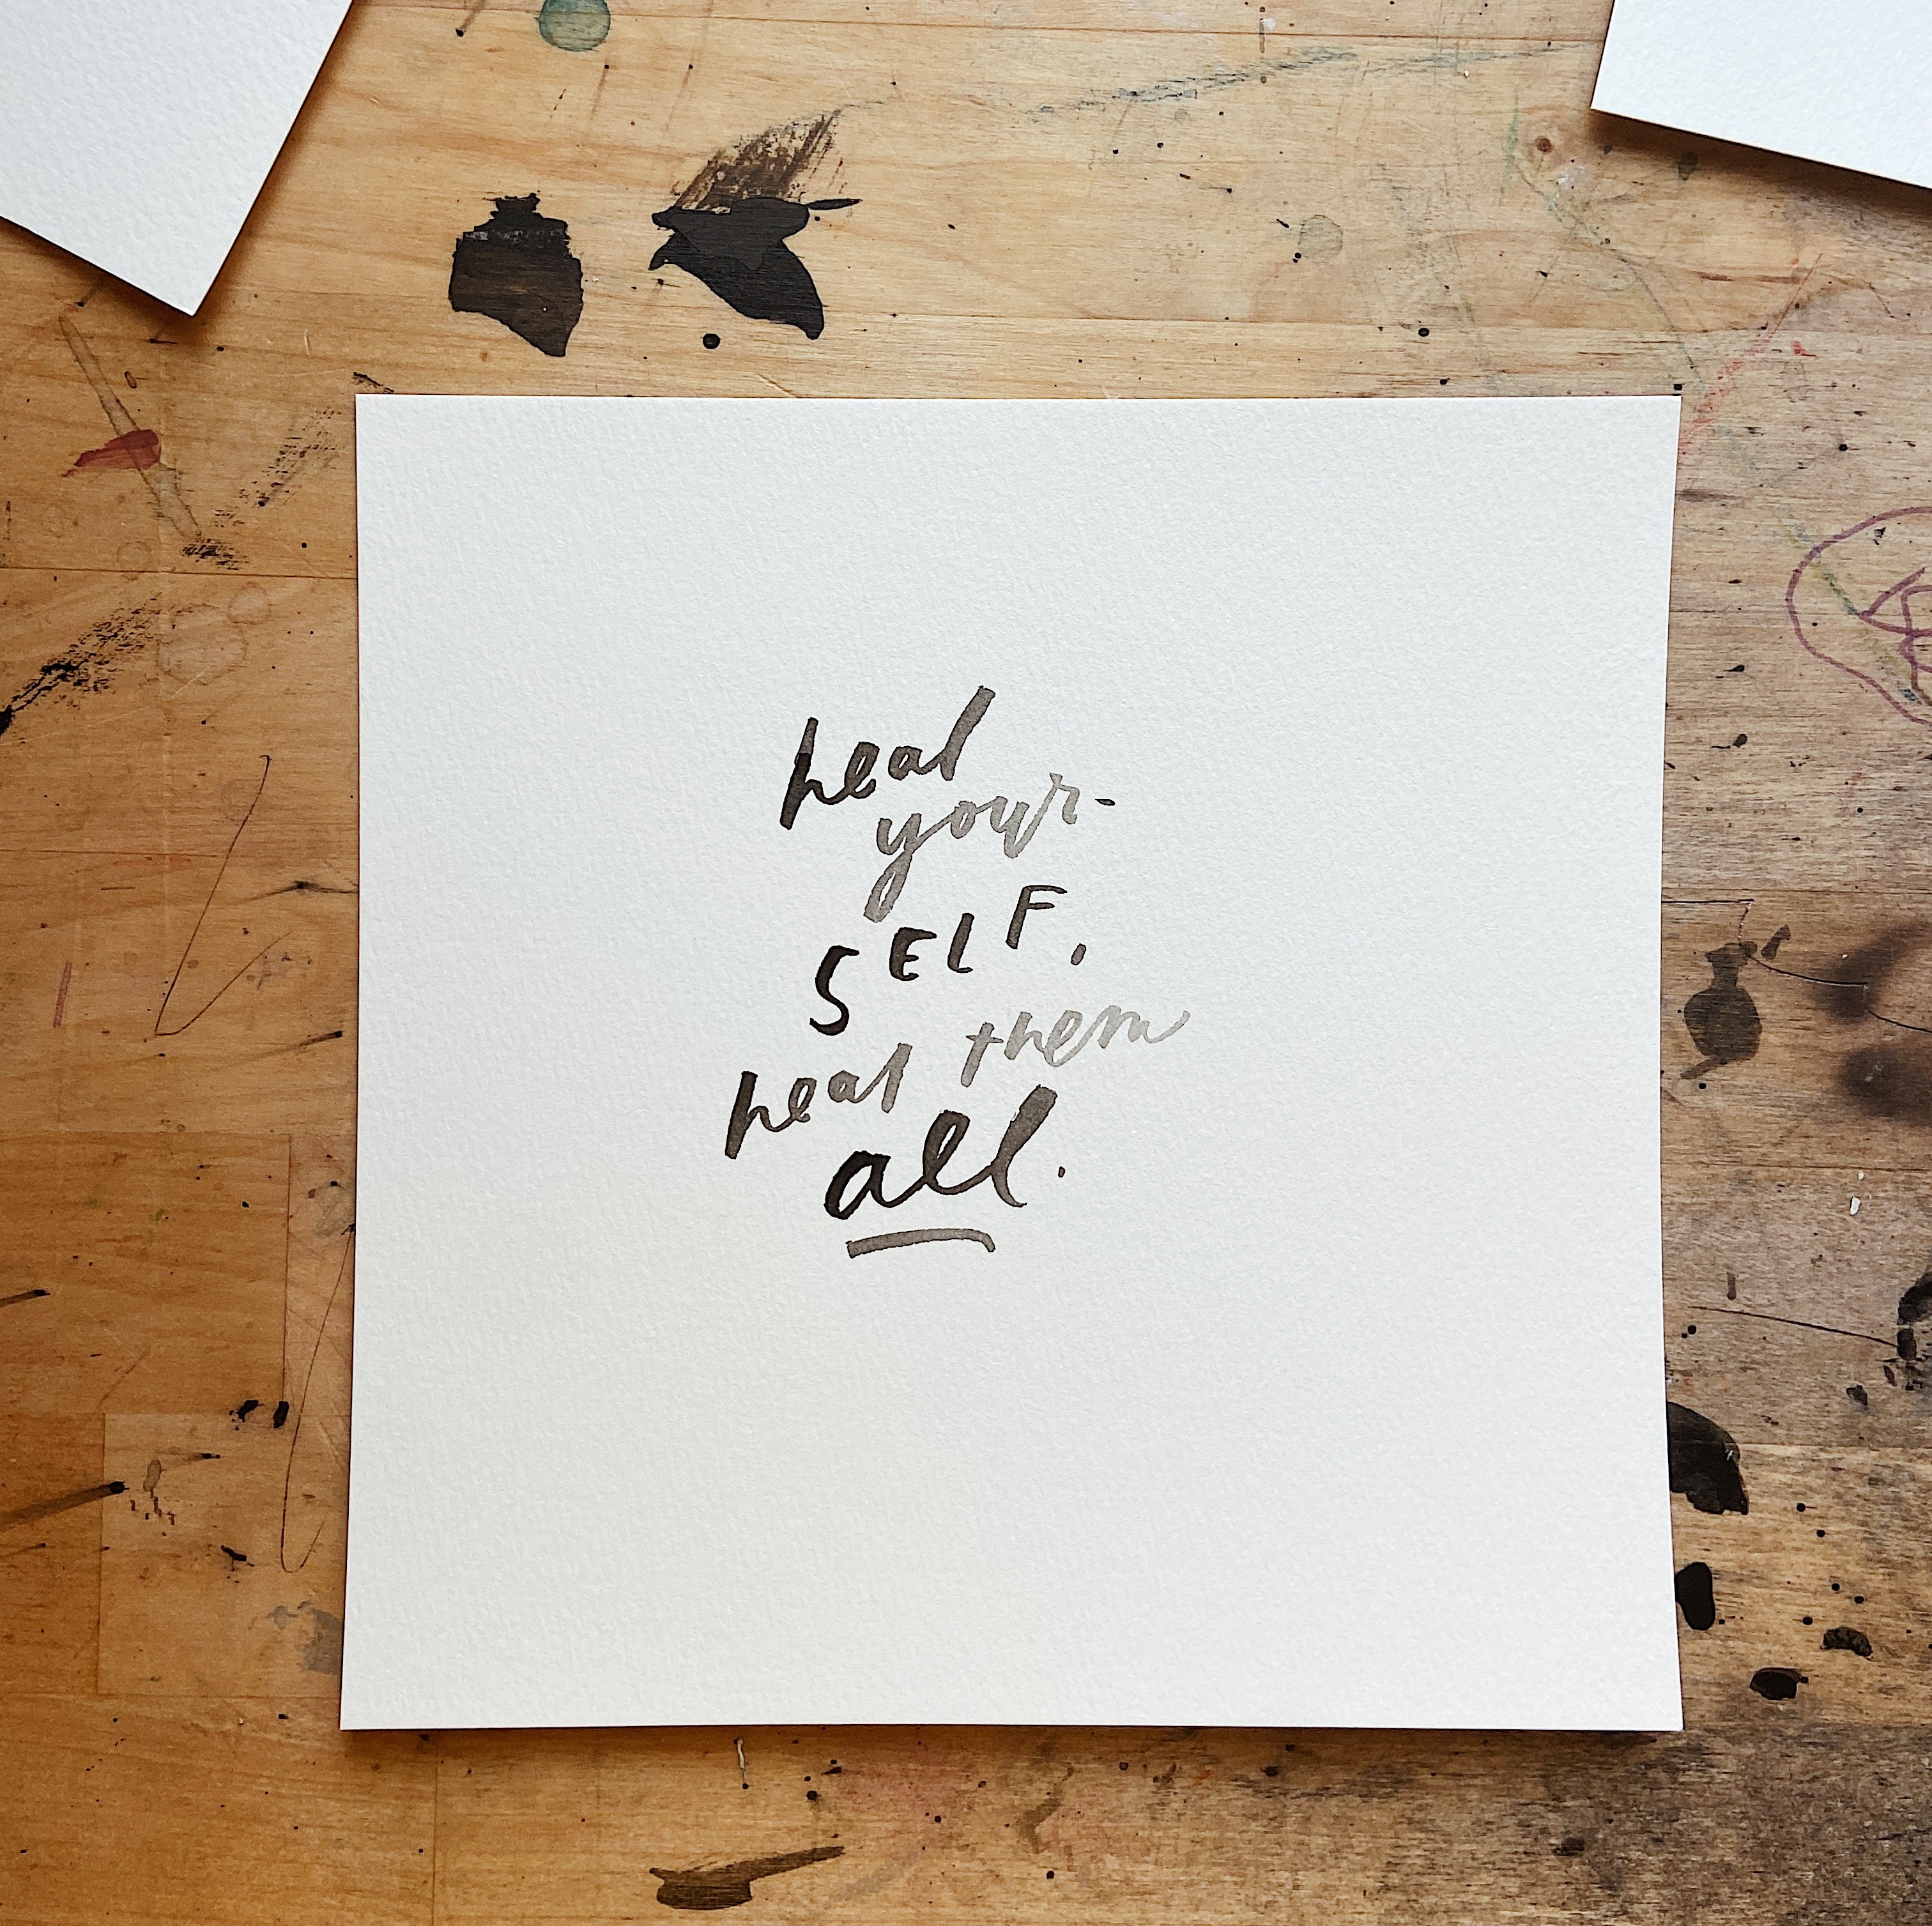 heal
your-
SELF,
heal them
all.